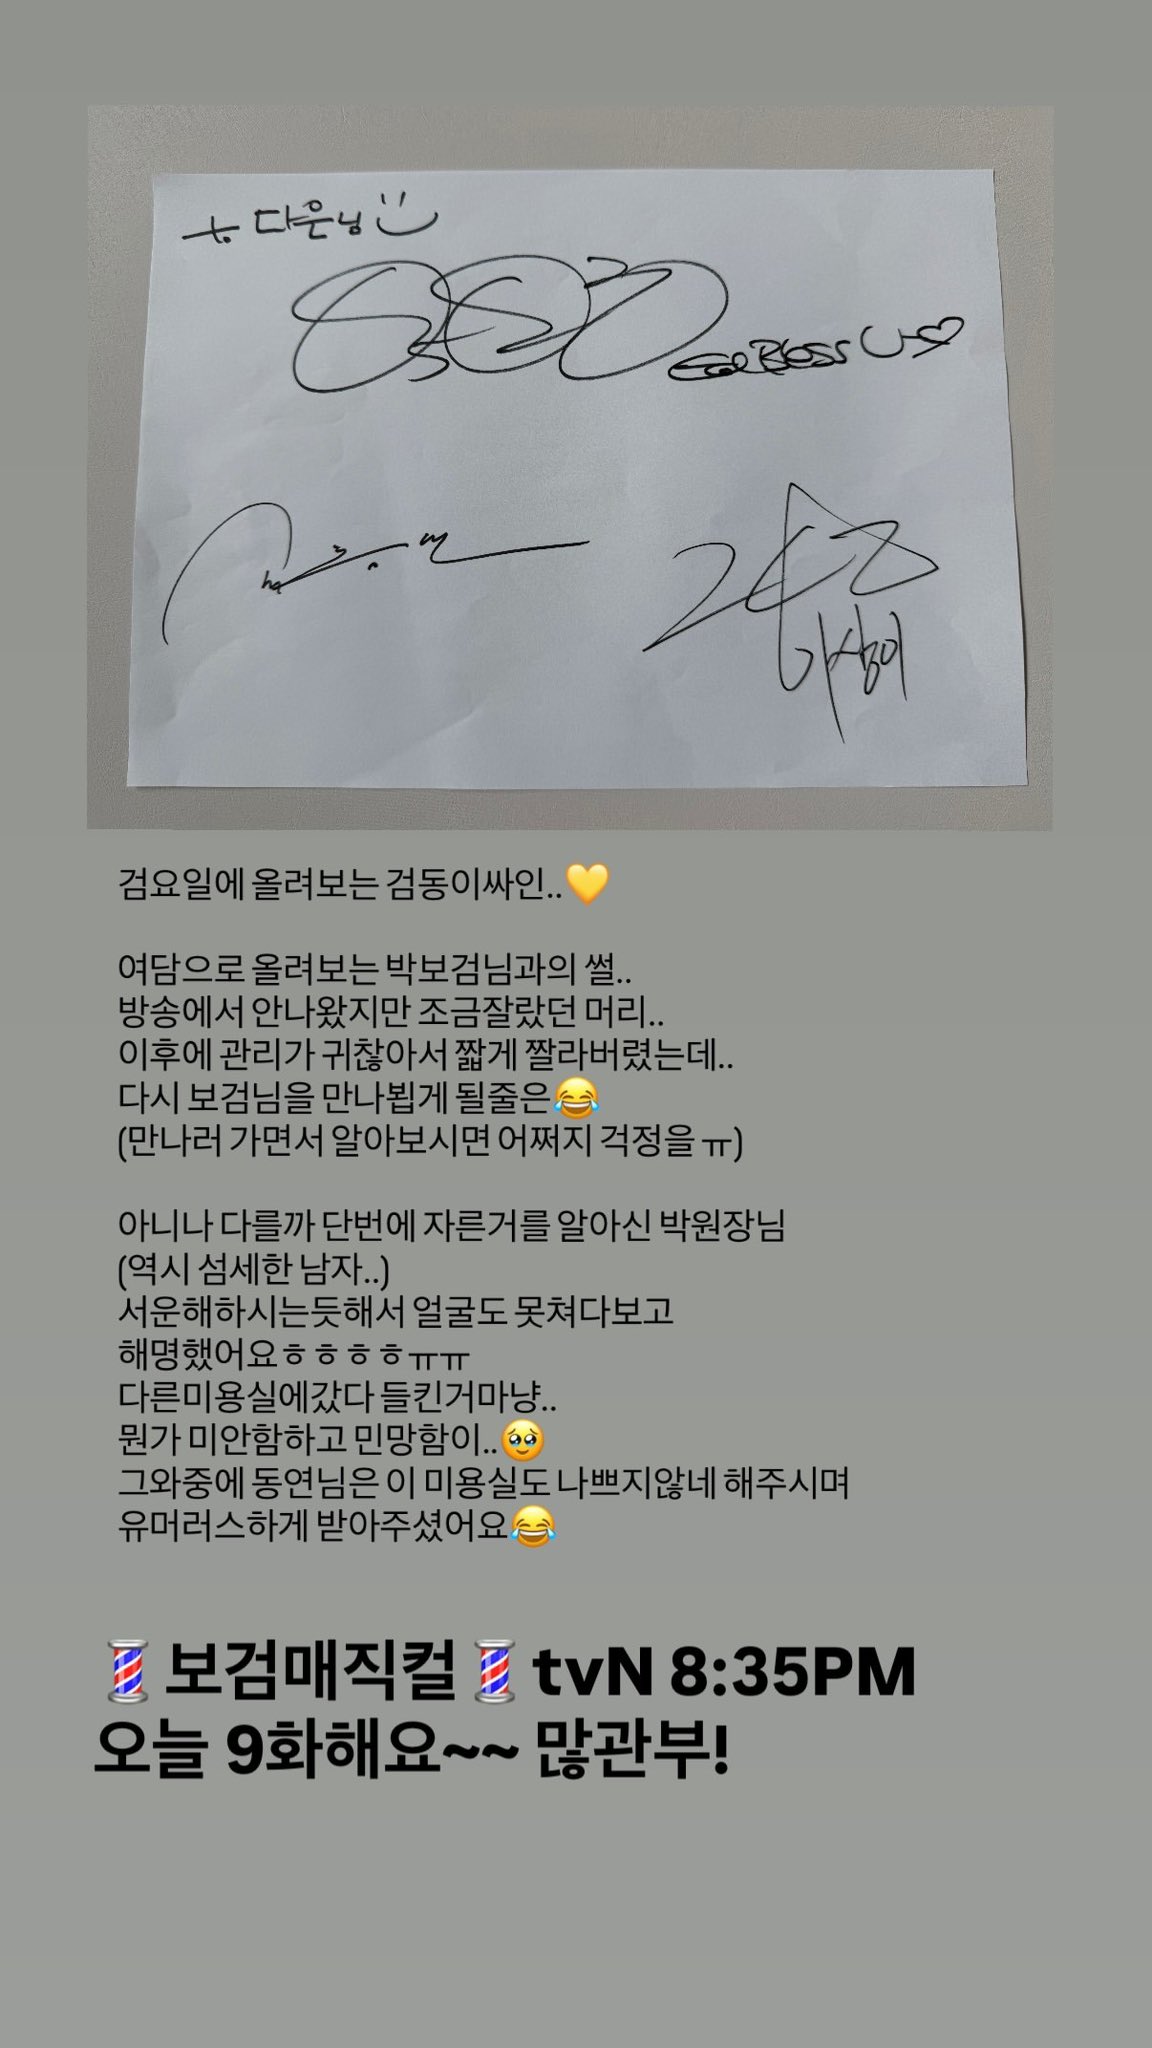 to. 다은님
God Bless U
이상이
검요일에 올려보는 검동이싸인..💛
여담으로 올려보는 박보검님과의 썰..
방송에서 안나왔지만 조금잘랐던 머리..
이후에 관리가 귀찮아서 짧게 짤라버렸는데..
다시 보검님을 만나뵙게 될줄은😂
(만나러 가면서 알아보시면 어쩌지 걱정을 ㅠ)
아니나 다를까 단번에 자른거를 알아신 박원장님
(역시 섬세한 남자..)
서운해하시는듯해서 얼굴도 못쳐다보고
해명했어요ㅎㅎㅎㅎㅠㅠ
다른미용실에갔다 들킨거마냥..
뭔가 미안함하고 민망함이..🥹
그와중에 동연님은 이 미용실도 나쁘지않네 해주시며
유머러스하게 받아주셨어요😂
💈보검매직컬💈tvN 8:35PM
오늘 9화해요~~ 많관부!